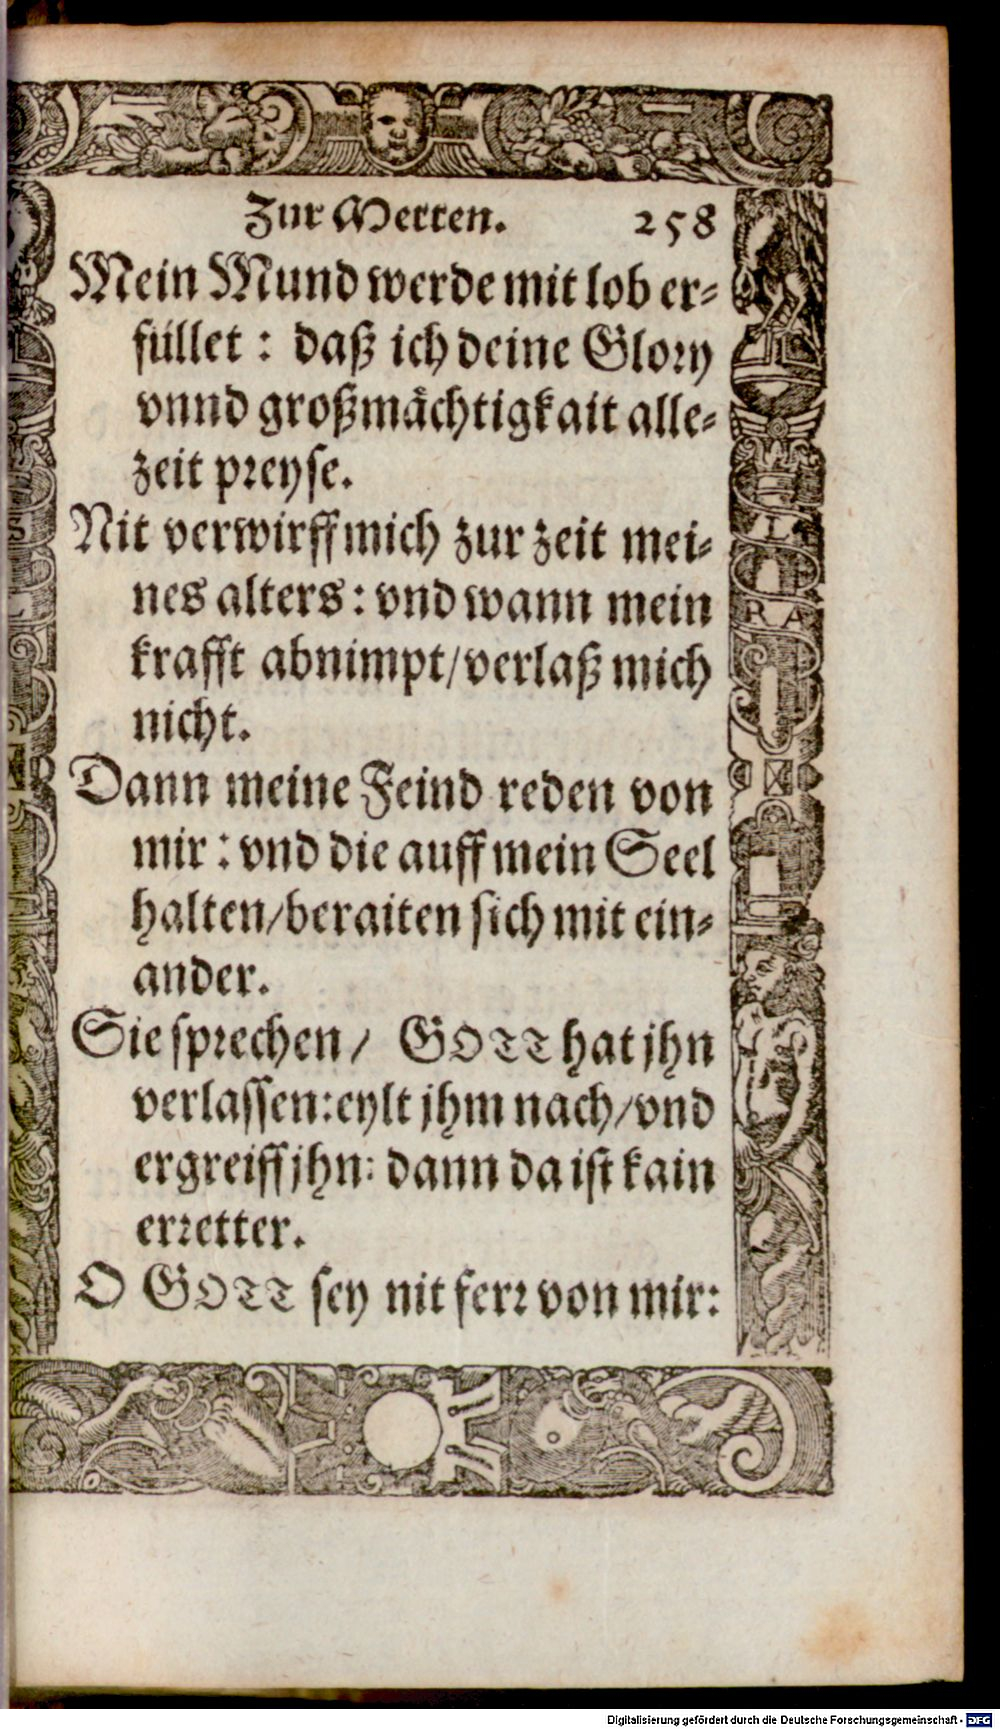 Zur Metten. 258
Mein Mund werde mit lob er⸗
füllet : daß ich deine Glory
vnnd großmächtigkait alle⸗
zeit preyse.
Nit verwirff mich zur zeit mei⸗
nes alters : vnd wann mein
krafft abnimpt/verlaß mich
nicht.
Dann meine Feind reden von
mir : vnd die auff mein Seel
halten/beraiten sich mit ein⸗
ander.
Sie sprechen / GOTT hat jhn
verlassen: eylt jhm nach/vnd
ergreiff jhn: dann da ist kain
erretter.
O GOTT sey nit ferr von mir:
L
RA
Digitalisierung gefördert durch die Deutsche Forschungsgemeinschaft - DFG